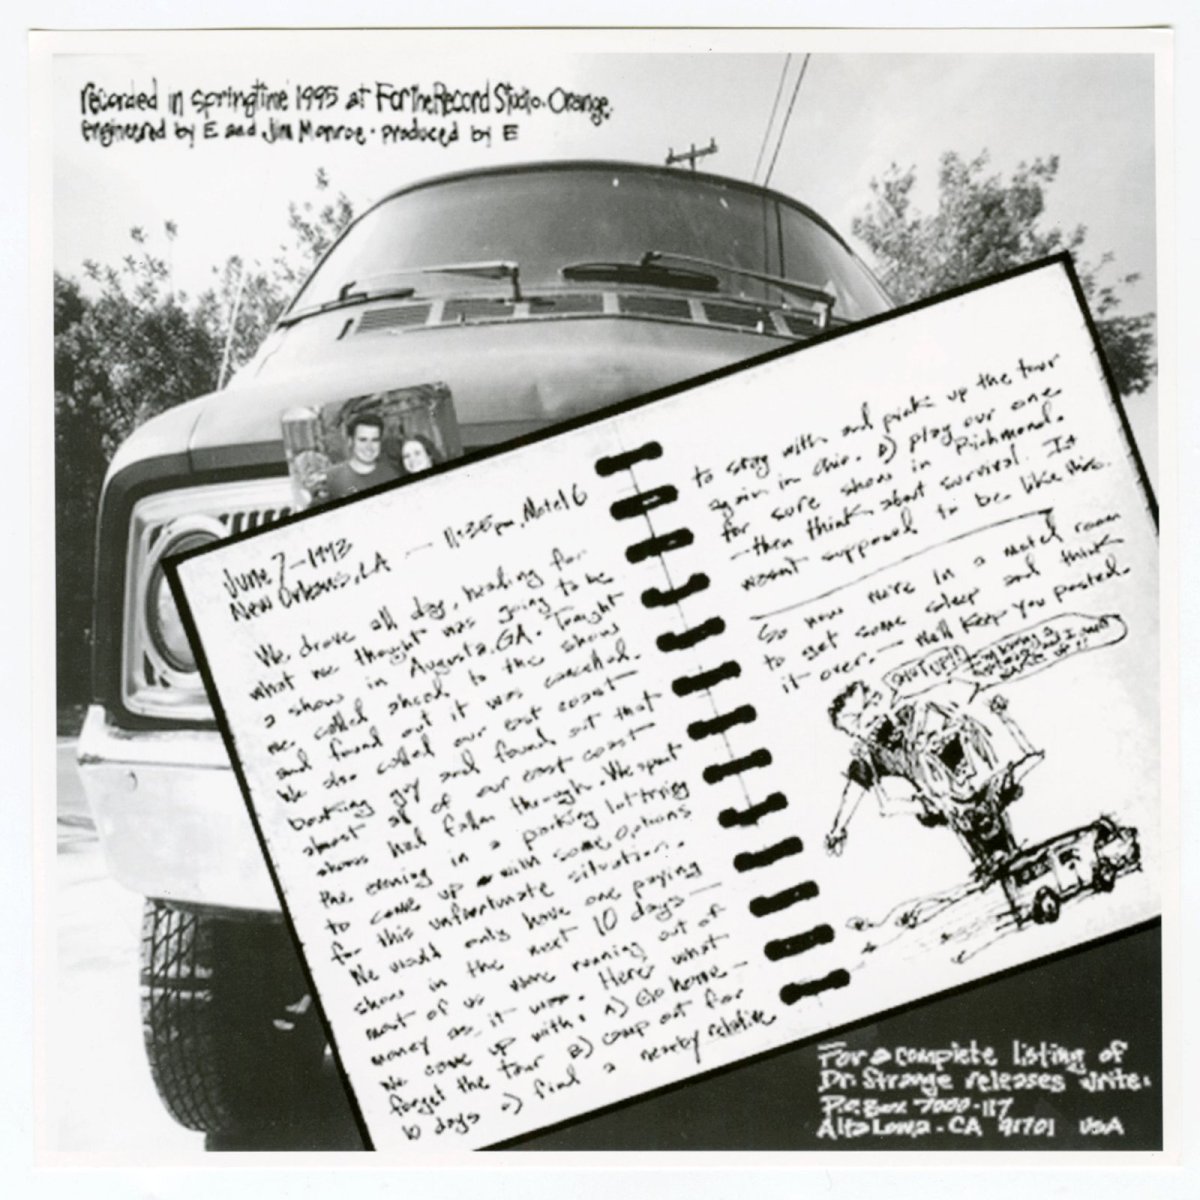 recorded in springtime 1995 at For The Record Studio. Orange.
engineered by E and Jim Monroe • produced by E
June 7 - 1993
New Orleans, LA — 11:35pm, Motel 6
We drove all day, heading for
what we thought was going to be
a show in Augusta, GA. Tonight
we called ahead to the show
and found out it was cancelled.
We also called our east coast
booking guy and found out that
almost all of our east coast
shows had fallen through. We spent
the evening in a parking lot trying
to come up with some options
for this unfortunate situation.
We would only have one paying
show in the next 10 days —
most of us were running out of
money as it was. Here's what
we came up with: A) Go home —
forget the tour B) camp out for
10 days C) find a nearby relative
to stay with and pick up the tour
again in Ohio. D) play our one
for sure show in Richmond.
— then think about survival. It
wasnt supposed to be like this.
So now we're in a motel room
to get some sleep and think
it over. — We'll keep you posted.
shut up!!
For a complete listing of
Dr. Strange releases write:
P.O. Box 7000-117
Alta Loma - CA 91701 USA